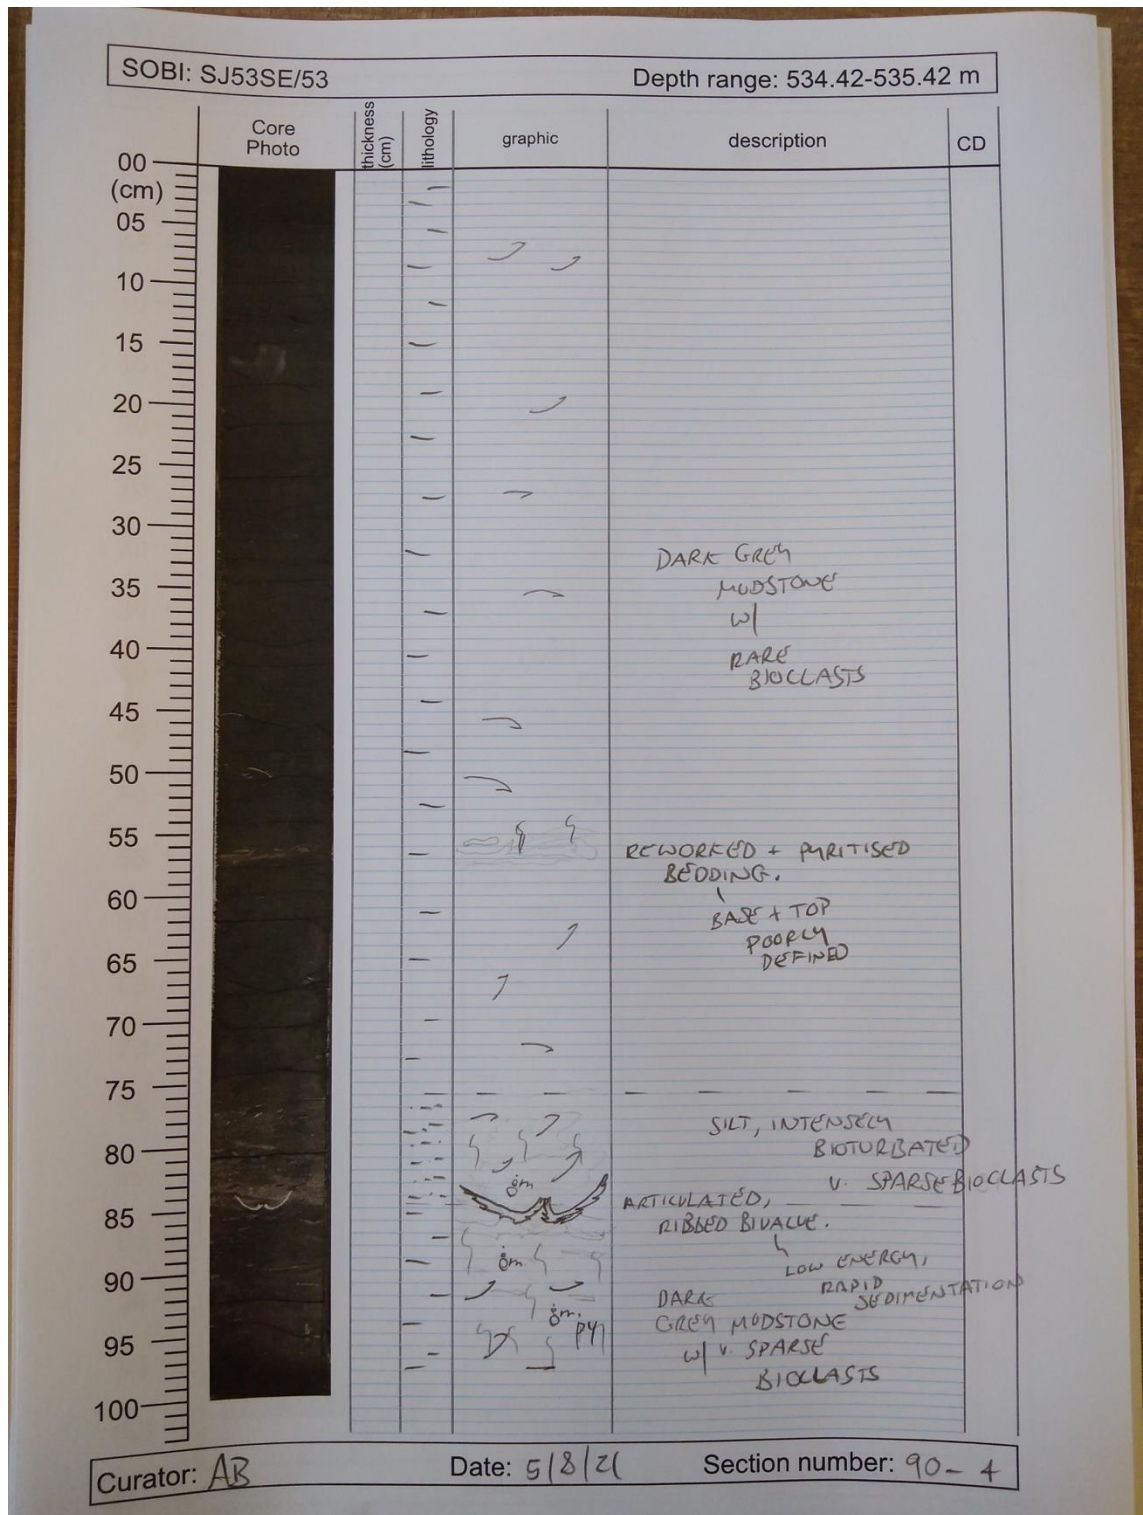 SOBI: SJ53SE/53
Depth range: 534.42-535.42 m
Core
Photo
thickness
(cm)
lithology
graphic
description
CD
00
(cm)
05
10
15
20
25
30
35
40
45
50
55
60
65
70
75
80
85
90
95
100
DARK GREY
MUDSTONE
w/
RARE
BIOCLASTS
REWORKED + PYRITISED
BEDDING.
BASE + TOP
POORLY
DEFINED
SILT, INTENSELY
BIOTURBATED
V. SPARSE BIOCLASTS
gm
ARTICULATED,
RIBBED BIVALVE.
LOW ENERGY,
RAPID
SEDIMENTATION
gm
DARK
GREY MUDSTONE
w/ V. SPARSE
BIOCLASTS
gm.
py
Curator: AB
Date: 5/8/21
Section number: 90-4